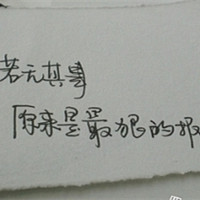 若无其事
原来是最狠的报